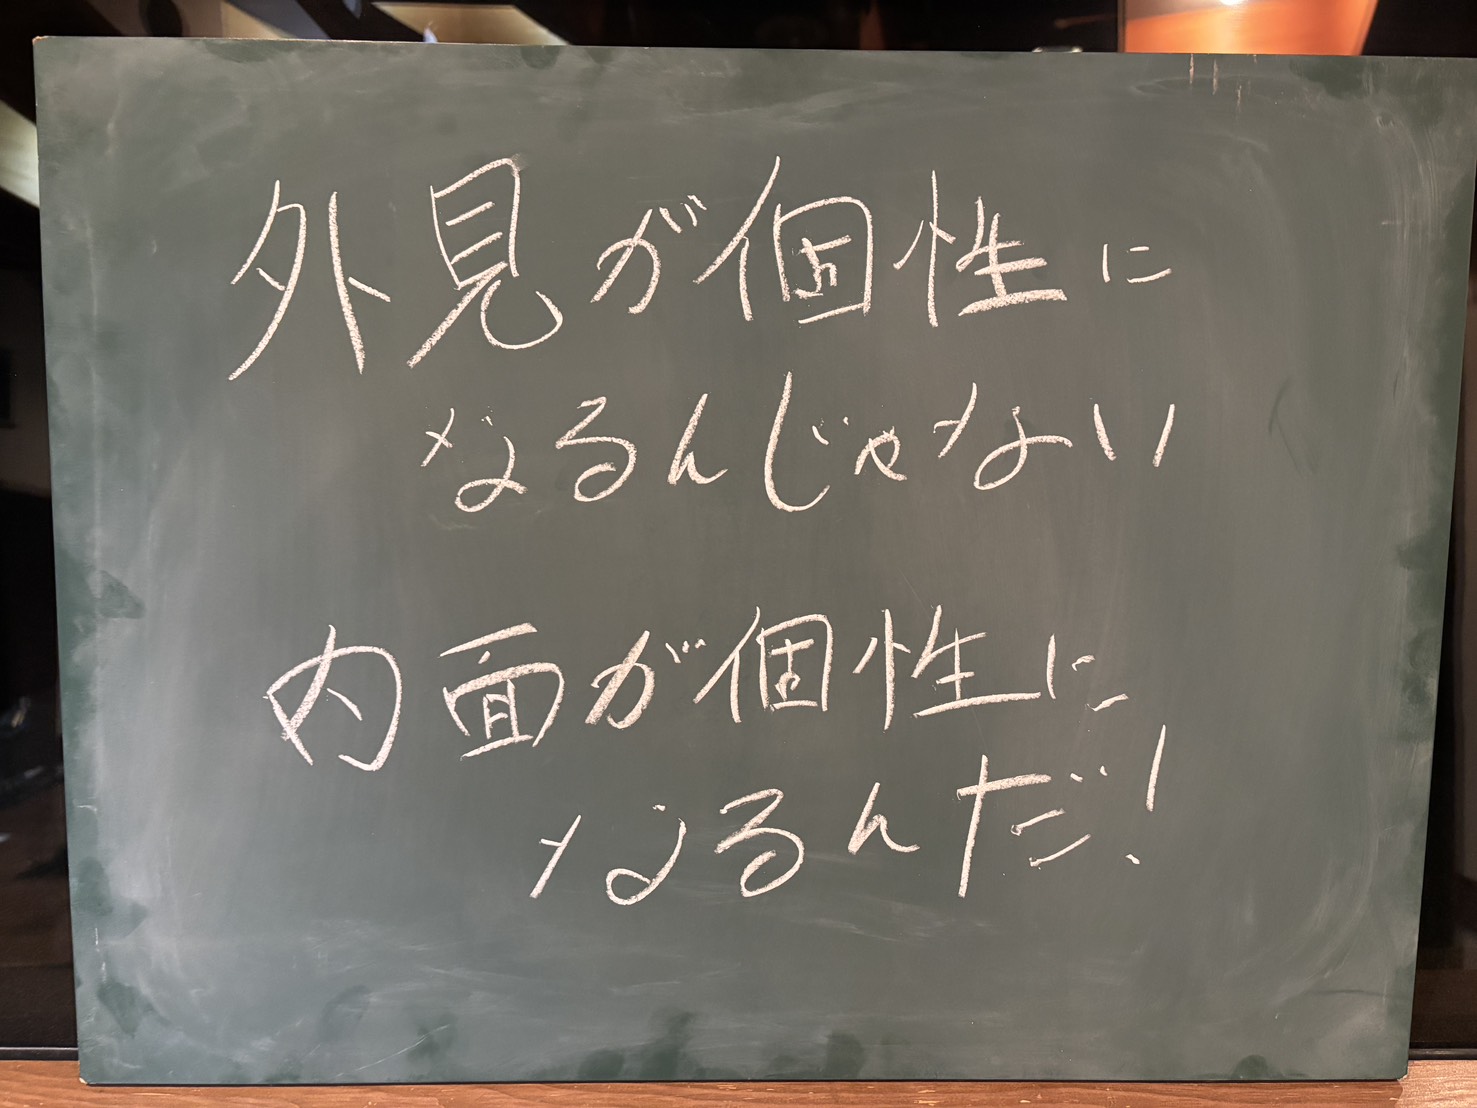 外見が個性に
なるんじゃない
内面が個性に
なるんだ!